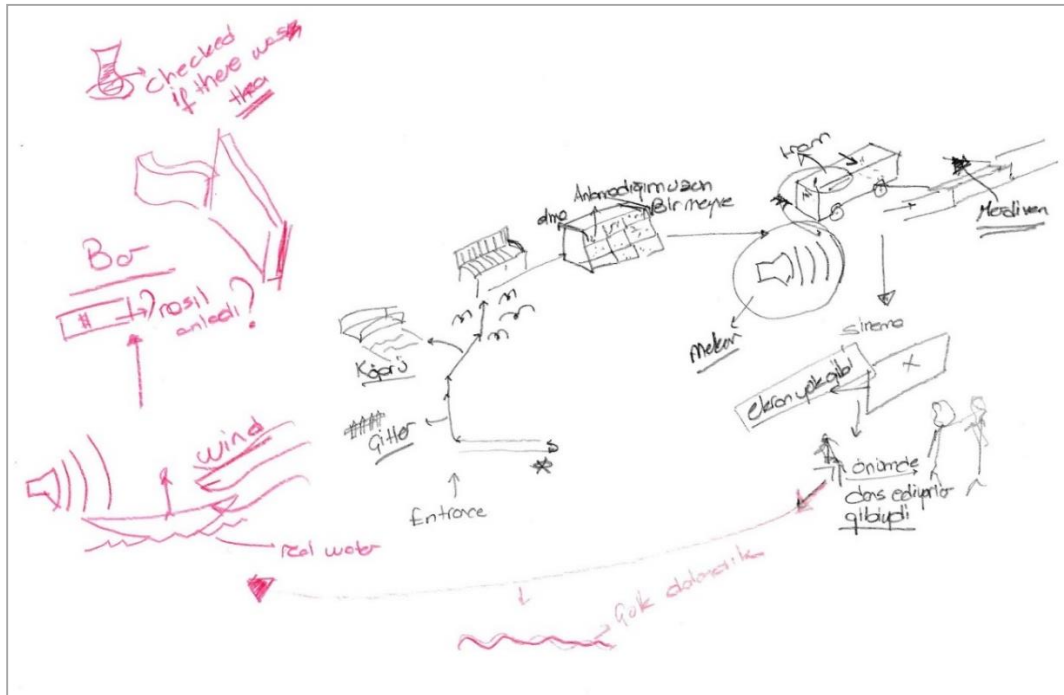 checked
if there was
thea
Bar
nasıl
anladı?
wind
real water
Entrance
Çitler
Köprü
elma
Anlamadığım uzun
Bir meyve
Mekan
tram
Merdiven
sinema
X
ekran yok gibi
önümde
dans ediyorlar
gibiydi
Çok dolandık